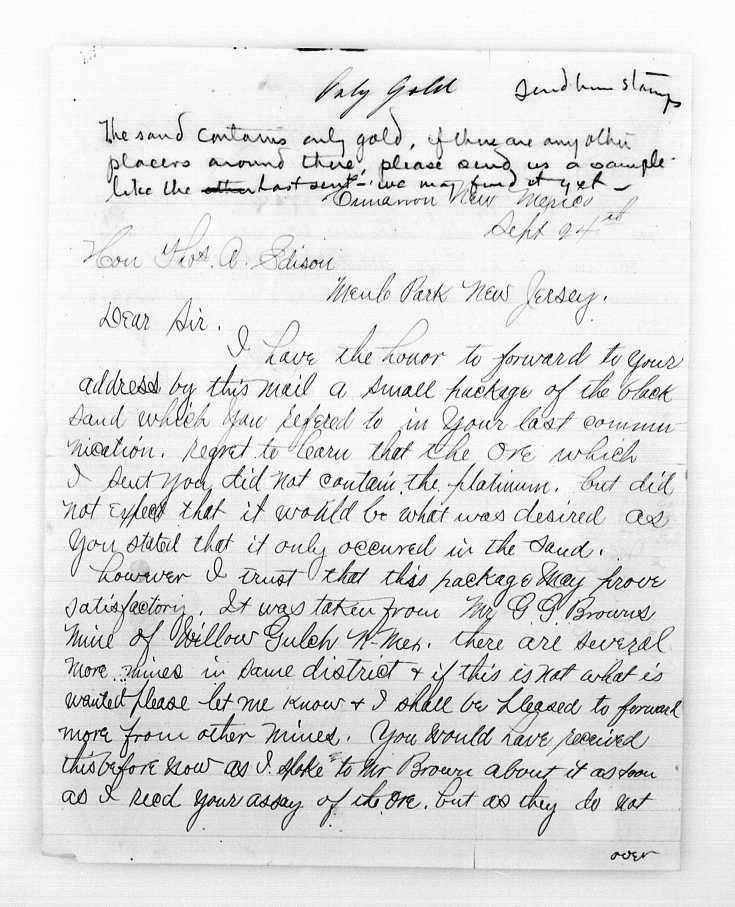 Only Gold
Send him stamps
The sand contains only gold, if there are any other
placers around there, please send us a sample
like the other last sent - we may find it yet -
Cimarron New Mexico
Sept 24th
Hon Thos. A. Edison
Menlo Park New Jersey.
Dear Sir.
I have the honor to forward to your
address by this mail a small package of the black
sand which you refered to in your last commu
nication. regret to learn that the Ore which
I sent you did not contain the platinum. but did
not expect that it would be what was desired as
you stated that it only occured in the sand.
however I trust that this package may prove
satisfactory. It was taken from Mr G. G. Browns
mine of Willow Gulch N-Mex. there are several
more mines in same district + if this is not what is
wanted please let me know + I shall be pleased to forward
more from other mines. You would have received
this before now as I spoke to Mr Brown about it as soon
as I recd your assay of the ore. but as they do not
over